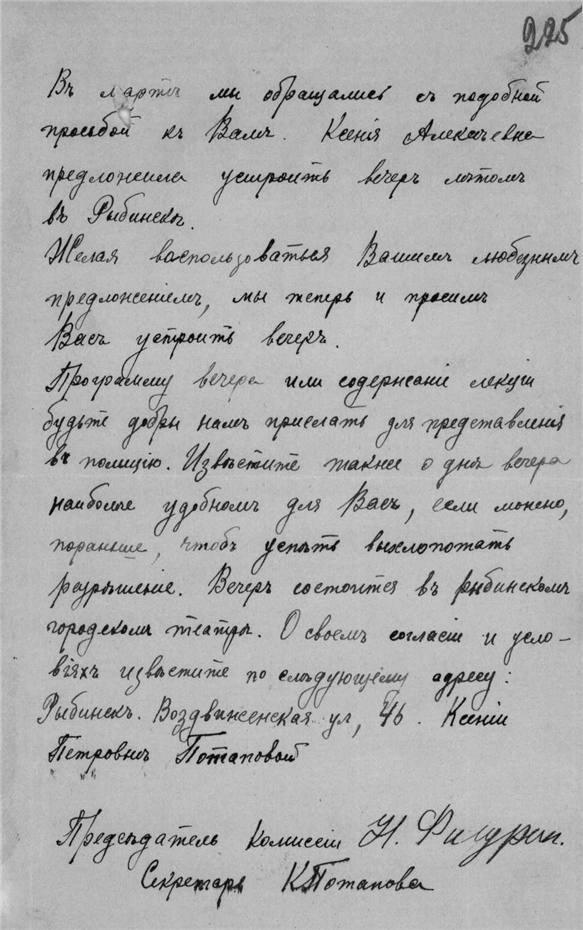 225
Въ мартѣ мы обращались съ подобной
просьбой къ Вамъ. Ксенія Алексѣевна
предложила устроить вечеръ лѣтомъ
въ Рыбинскѣ.
Желая воспользоваться Вашимъ любезнымъ
предложеніемъ, мы теперь и просимъ
Васъ устроить вечеръ.
Программу вечера или содержаніе лекціи
будьте добры намъ прислать для представленія
въ полицію. Извѣстите также о днѣ вечера
наиболѣе удобномъ для Васъ, если можно,
пораньше, чтобъ успѣть выхлопотать
разрѣшеніе. Вечеръ состоится въ рыбинскомъ
городскомъ театрѣ. О своемъ согласіи и усло-
віяхъ извѣстите по слѣдующему адресу:
Рыбинскъ. Воздвиженская ул, 46. Ксеніи
Петровнѣ Потаповой
Предсѣдатель комиссіи Н. Фигурин.
Секретарь КПотапова